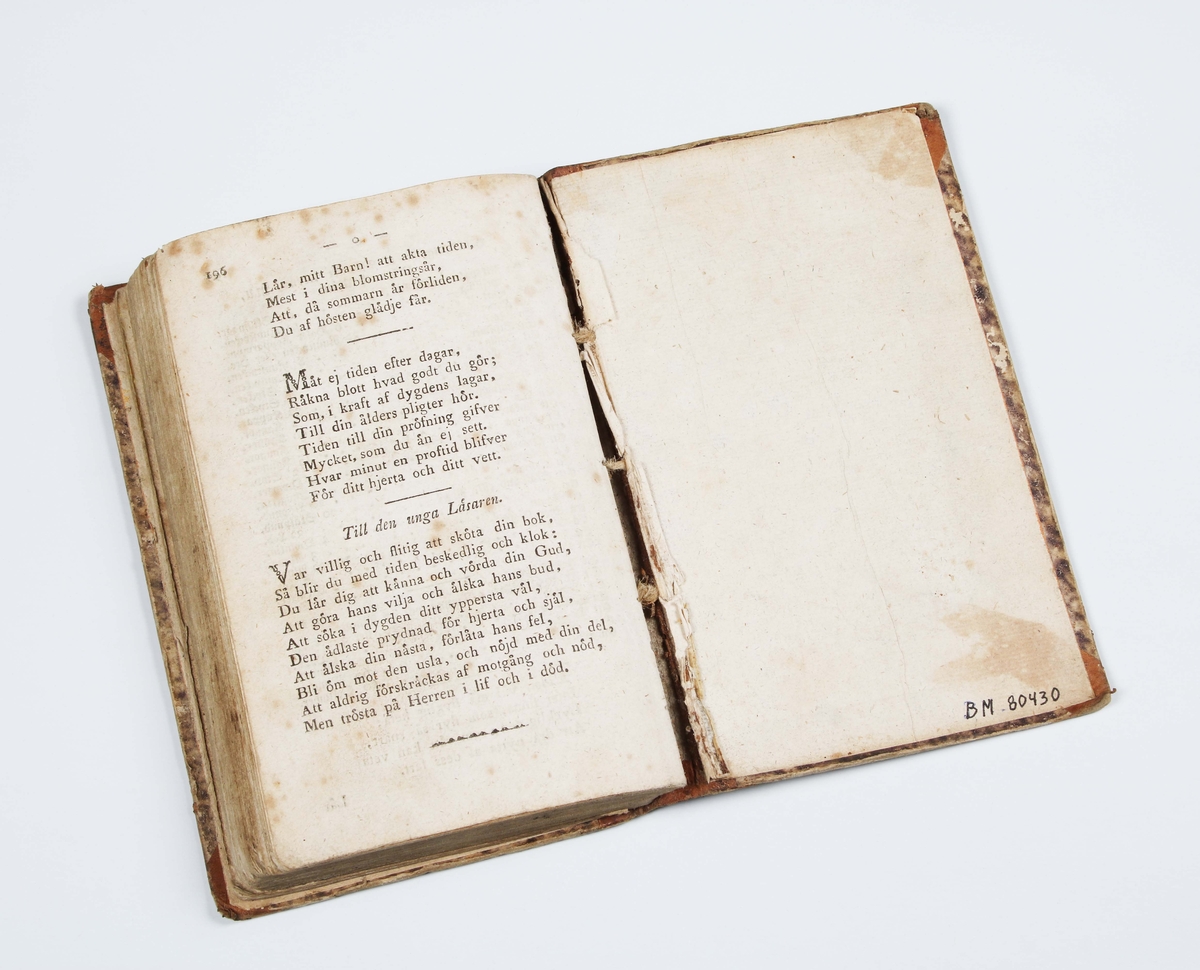 — o —
196
Lår, mitt Barn! att akta tiden,
Mest i dina blomstringsår,
Att, då sommarn år förliden,
Du af hösten glådje får.
Måt ej tiden efter dagar,
Råkna blott hvad godt du gör;
Som, i kraft af dygdens lagar,
Till din ålders pligter hör.
Tiden till din pröfning gifver
Mycket, som du ån ej sett.
Hvar minut en proftid blifver
För ditt hjerta och ditt vett.
Till den unga Låsaren.
Var villig och flitig att sköta din bok,
Så blir du med tiden beskedlig och klok:
Du lår dig att kånna och vörda din Gud,
Att göra hans vilja och ålska hans bud,
Att söka i dygden ditt yppersta vål,
Den ådlaste prydnad för hjerta och sjål,
Att ålska din nåsta, förlåta hans fel,
Bli öm mot den usla, och nöjd med din del,
Att aldrig förskråckas af motgång och nöd,
Men trösta på Herren i lif och i död.
BM 80430